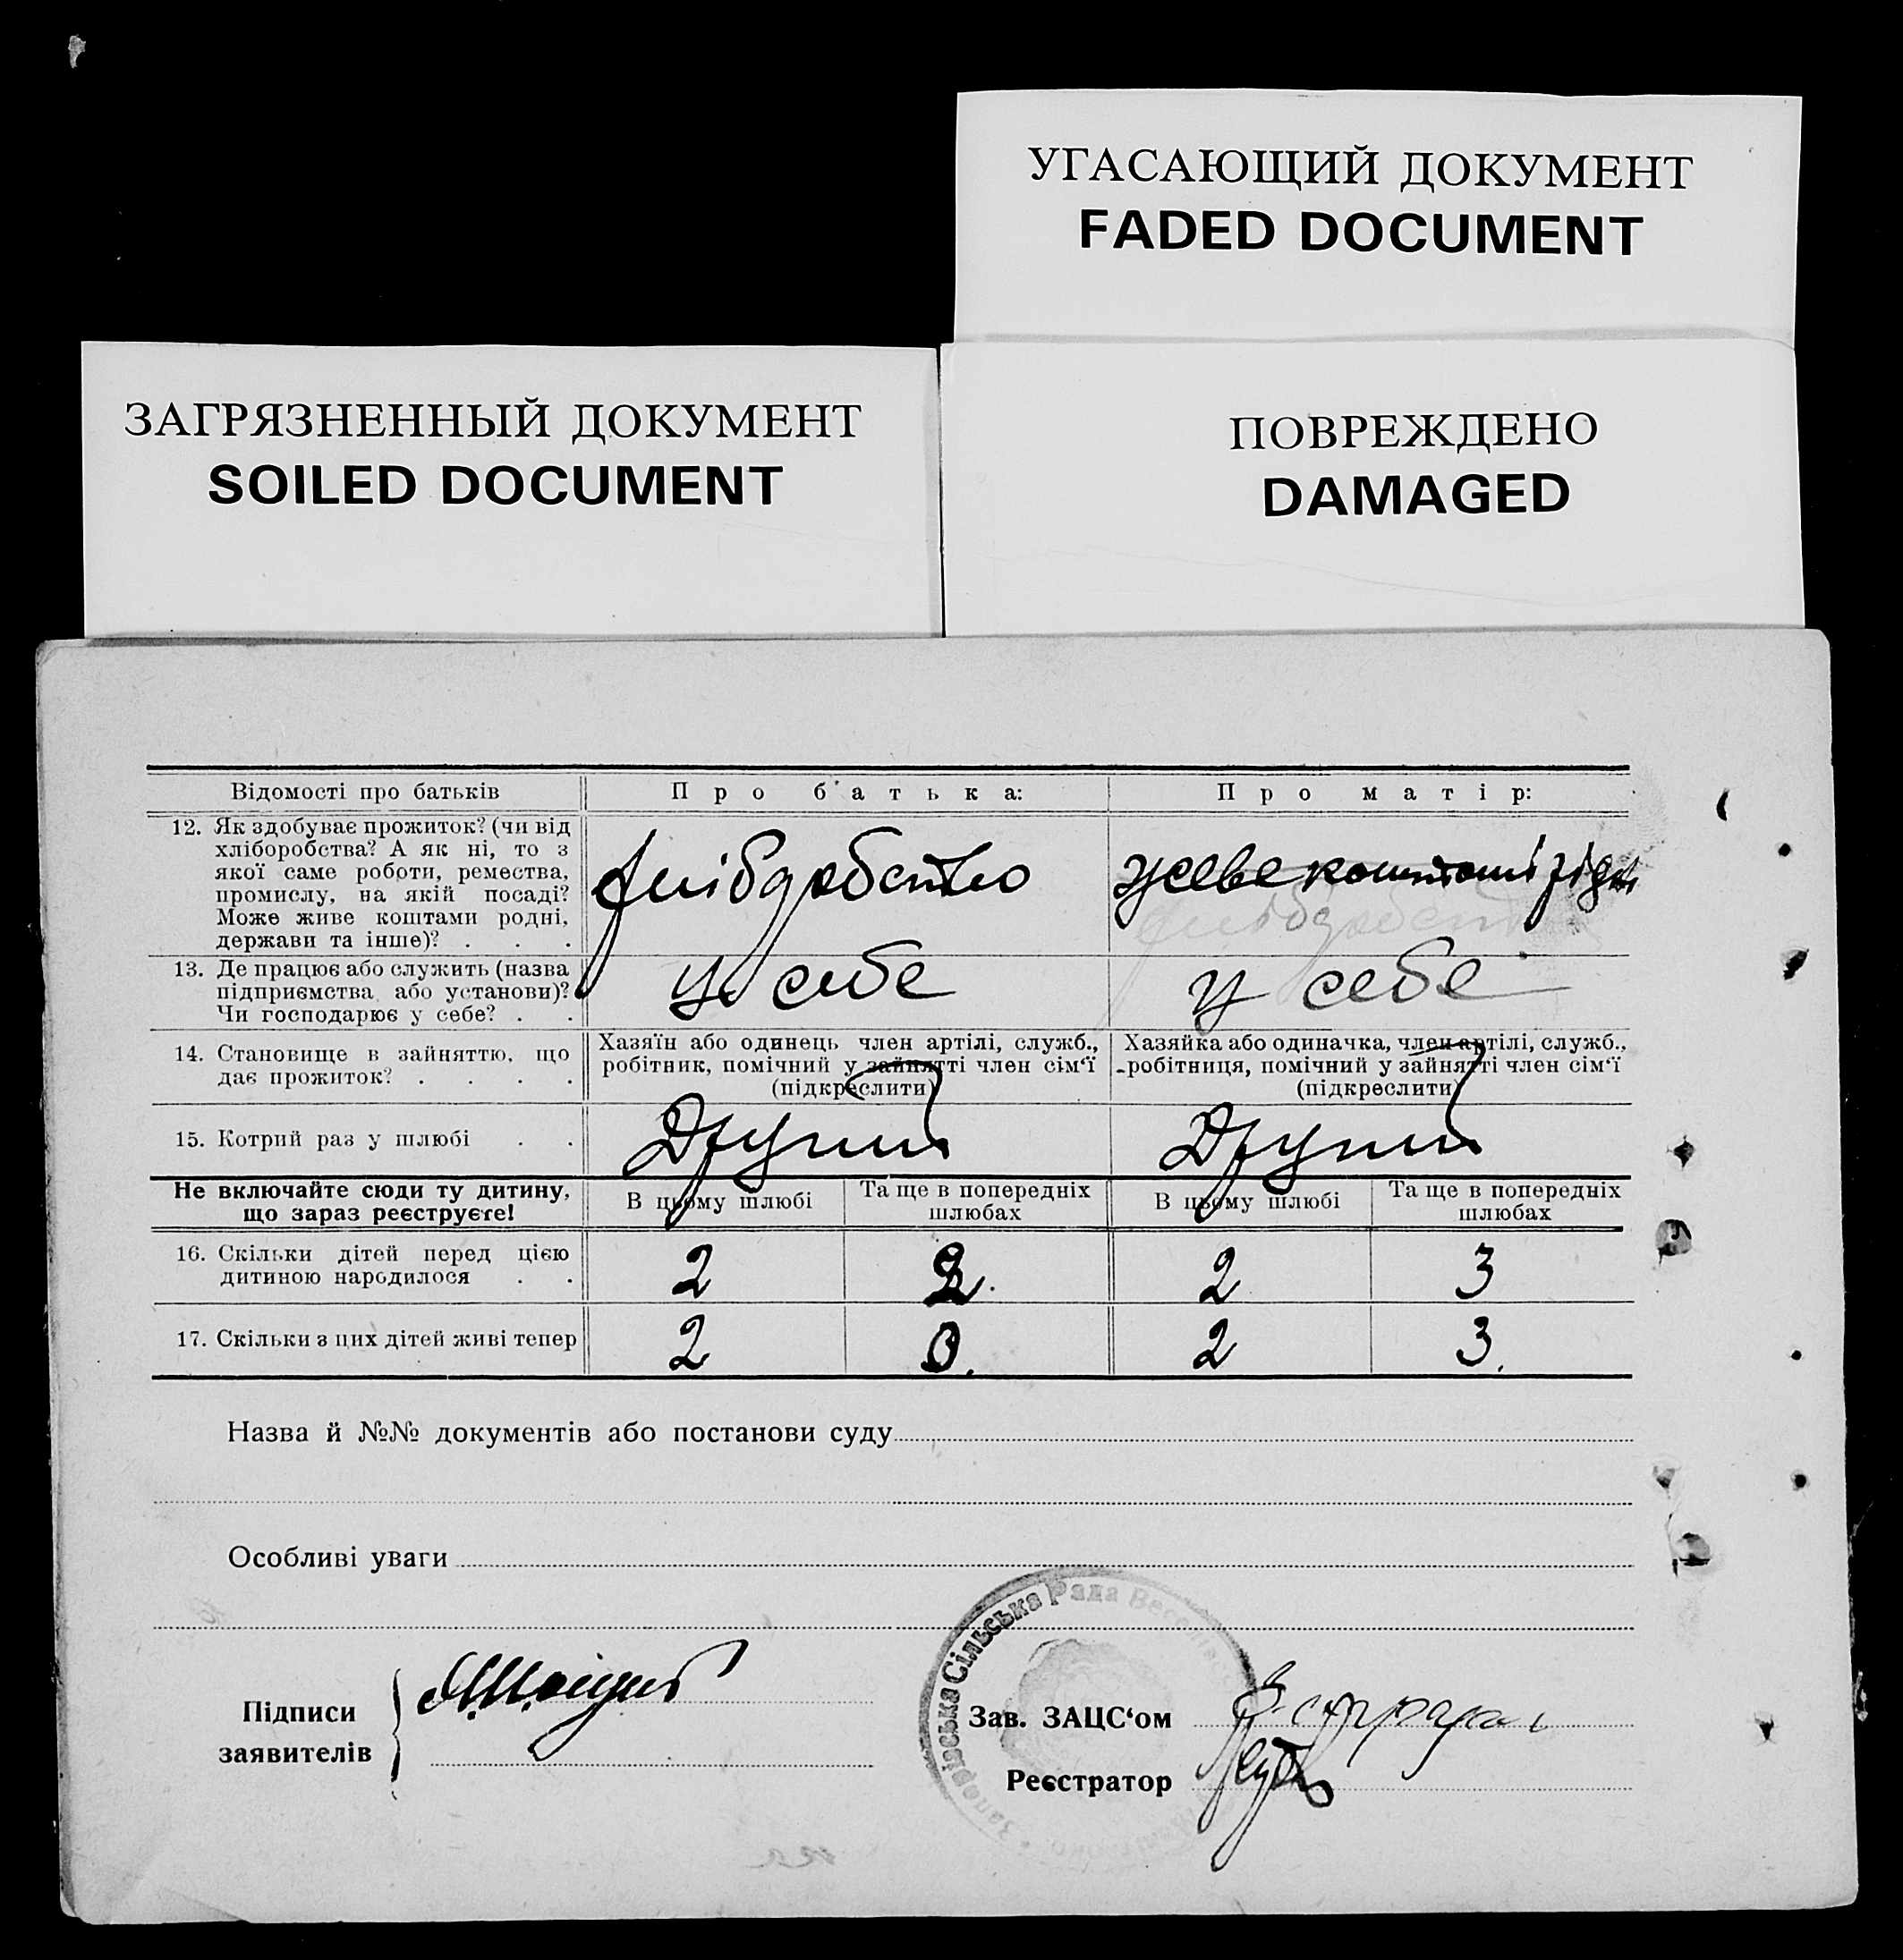 УГАСАЮЩИЙ ДОКУМЕНТ
FADED DOCUMENT
ЗАГРЯЗНЕННЫЙ ДОКУМЕНТ
SOILED DOCUMENT
ПОВРЕЖДЕНО
DAMAGED
Відомості про батьків
Про батька:
Про матір:
12. Як здобуває прожиток? (чи від
хліборобства? А як ні, то з
якої саме роботи, ремества,
промислу, на якій посаді?
Може живе коштами родні,
держави та інше)? . . .
хліборобство
живе коштами рідні
13. Де працює або служить (назва
підприємства або установи)?
Чи господарює у себе? . .
у себе
у себе
14. Становище в зайняттю, що
дає прожиток? . . . .
Хазяїн або одинець член артілі, служб.,
робітник, помічний у зайнятті член сім'ї
(підкреслити)
Хазяйка або одиначка, член артілі, служб.,
робітниця, помічний у зайнятті член сім'ї
(підкреслити)
15. Котрий раз у шлюбі . .
Другий
Другий
Не включайте сюди ту дитину,
що зараз реєструєте!
В цьому шлюбі
Та ще в попередніх
шлюбах
В цьому шлюбі
Та ще в попередніх
шлюбах
16. Скільки дітей перед цією
дитиною народилося . .
2
2
2
3
17. Скільки з цих дітей живі тепер
2
0
2
3
Назва й №№ документів або постанови суду
Особливі уваги
Підписи
заявителів
Зав. ЗАЦС'ом
Реєстратор
Запорізька Сільська Рада